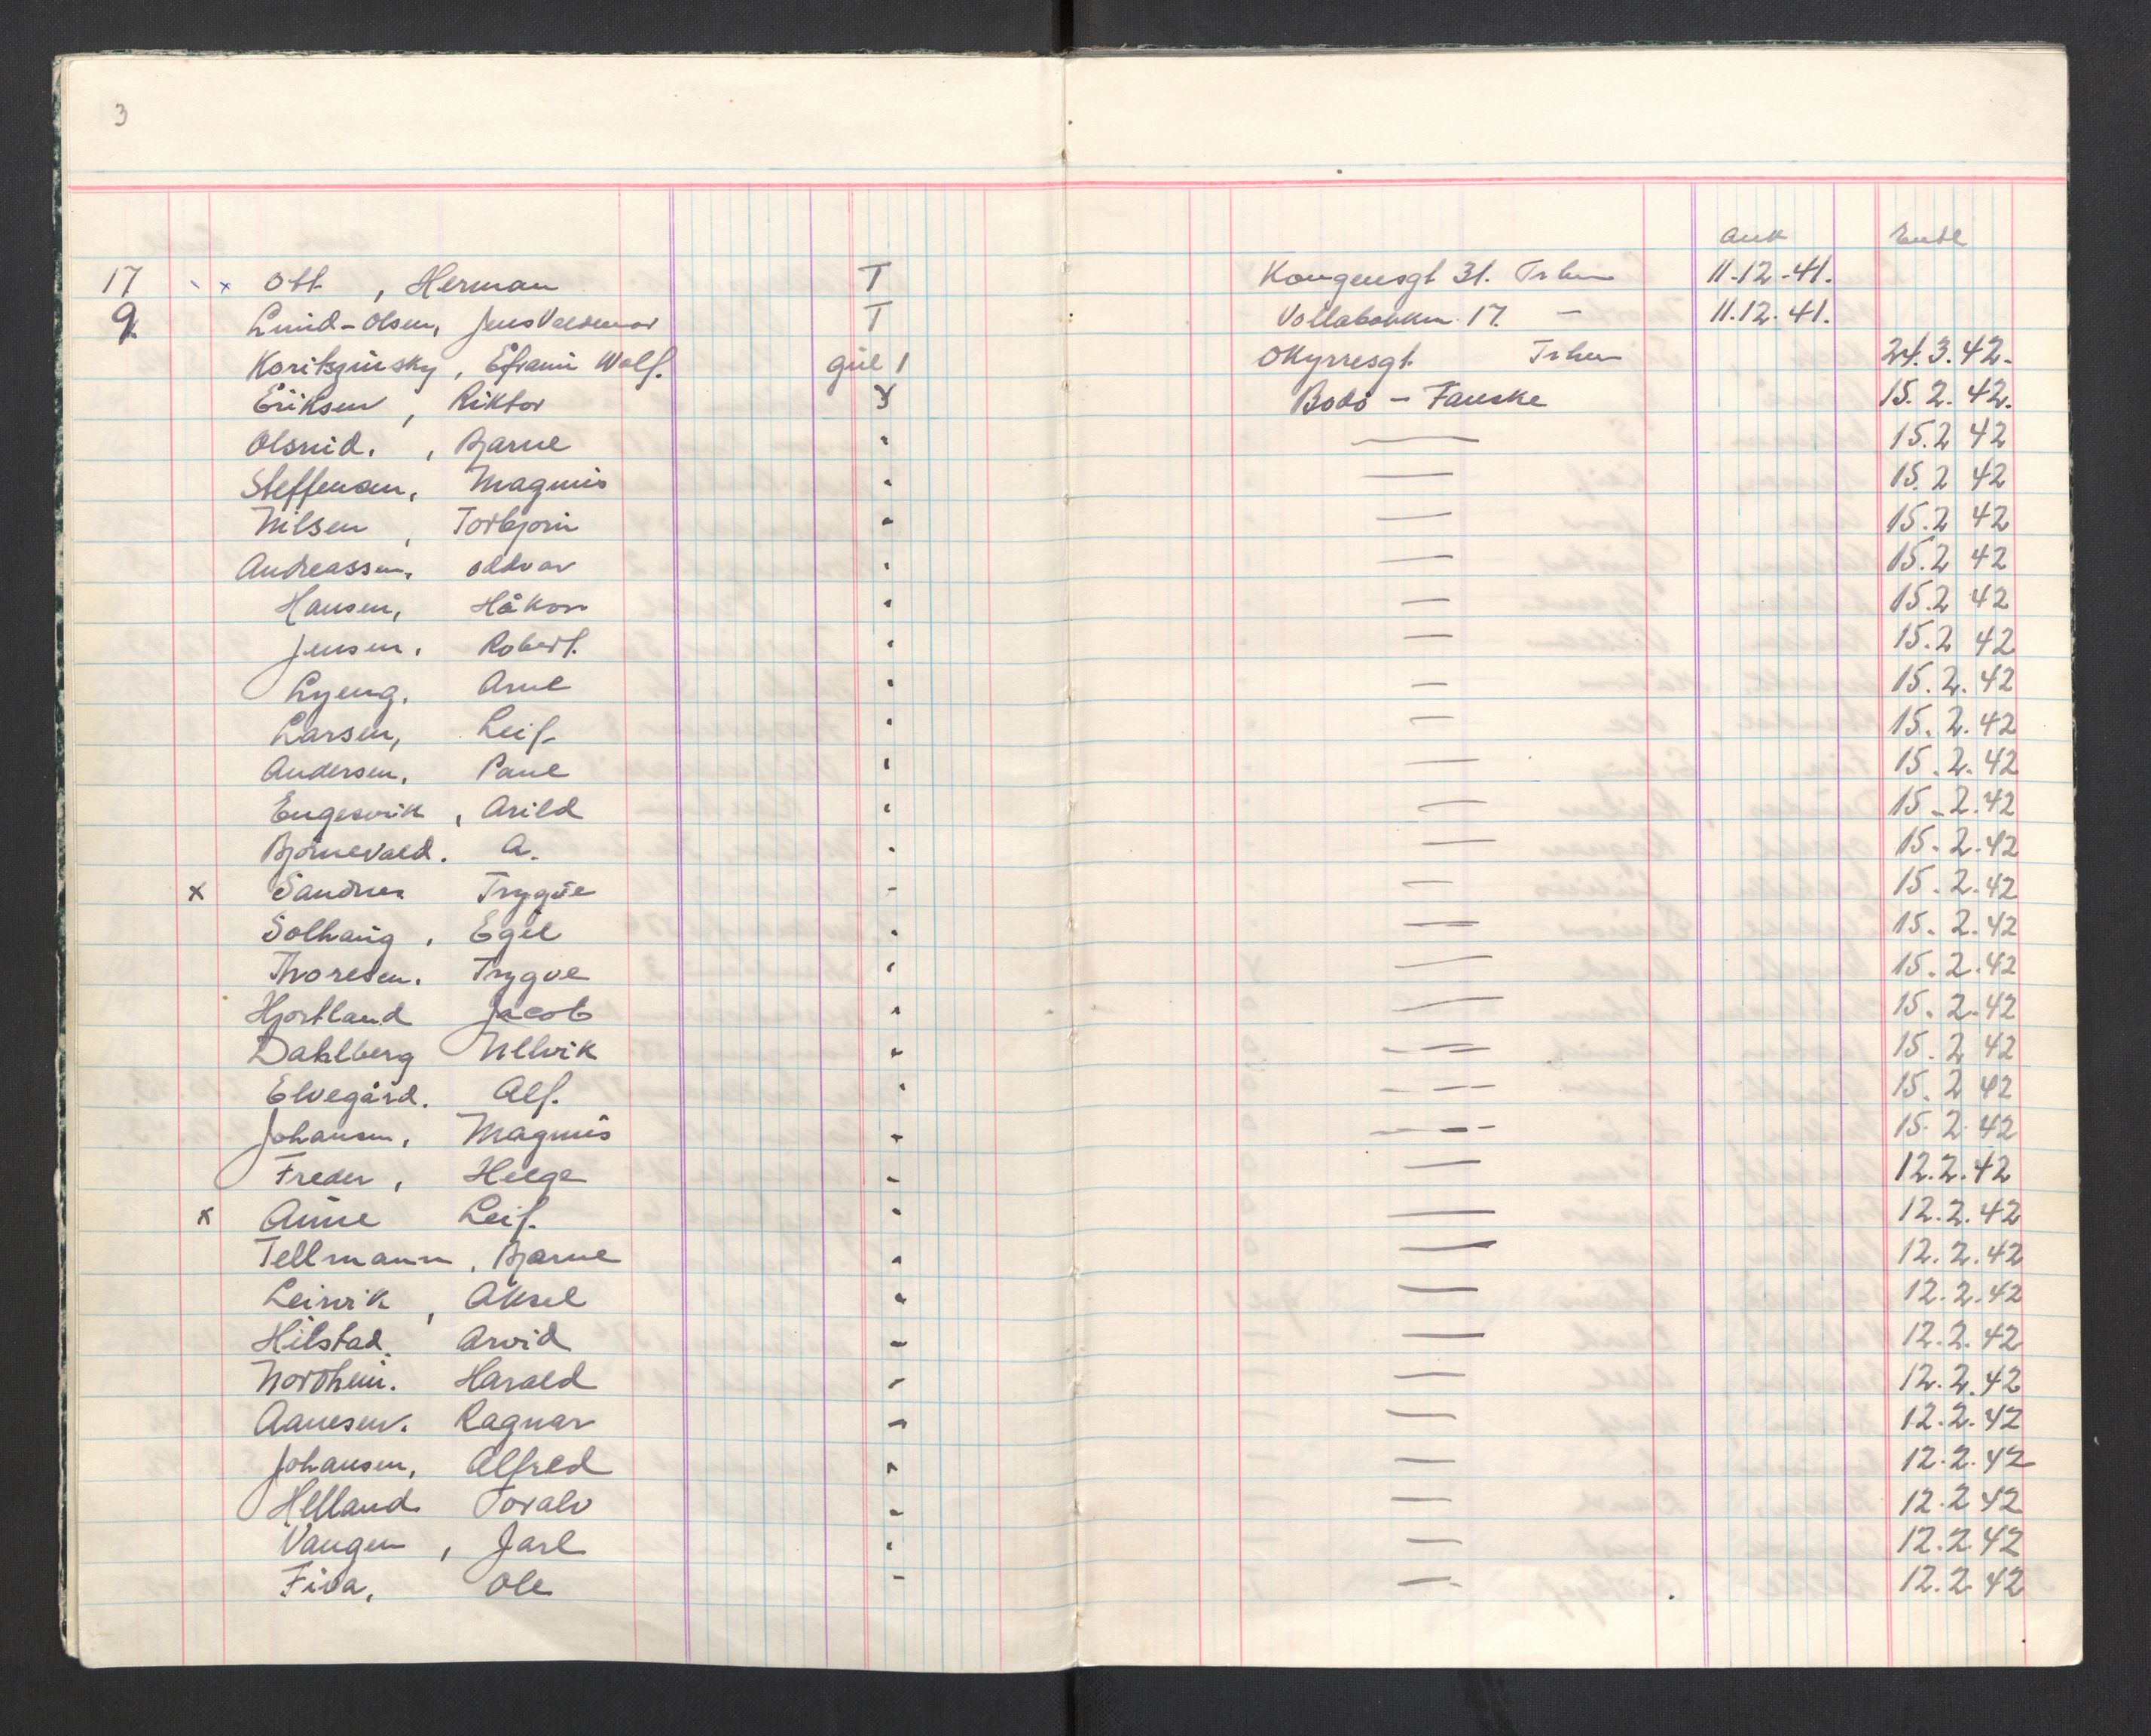 3
Ank Entl
17 x Ott , Herman T Kongensgt 31. Trhm 11.-12.-41.
9 Lund-Olsen, Jens Valdemar T Vollabakken 17. — 11.12.41.
Koritzinsky, Efraim Wolf. gul 1 OKyrresgt. Trhm 24.3.42.
Eriksen , Riktor Y Bodö - Fauske 15.2.42.
, Bjarne " — 15.2 42
Steffensen, Magnus " — 15.2 42
Nilsen , Torbjörn " — 15.2 42
Andreassen, Oddvar " — 15.2 42
Hansen, Håkon " — 15.2 42
Jensen, Robert. " — 15.2 42
Lyeng, Arne " — 15.2.42
Larsen, Leif. " — 15.2.42
Andersen, Paul " — 15.2.42
Engesvik , Arild " — 15.2.42
Björnevald. A. " — 15.2.42
x Sandnes Trygve - — 15.2.42
Solhaug , Egil " — 15.2.42
Thoresen. Trygve " — 15.2.42
Hjortland Jacob " — 15.2.42
Dahlberg " — 15.2 42
Elvegård. Alf. " — 15.2 42
Johansen, Magnus - — 15.2.42
Freder , Helge - — 12.2.42
x Aune Leif. - — 12.2.42
Tellmann , Bjarne " — 12.2.42
Leirvik , Aksel " — 12.2.42
Hilstad. Arvid - — 12.2.42
Nordheim. Harald - — 12.2.42
Aanesen. Ragnar - — 12.2.42
Johansen, Alfred " — 12.2.42
Helland Toralv - — 12.2 42
Vangen , Jarl " — 12.2.42
Fiva, Ole - — 12.2.42